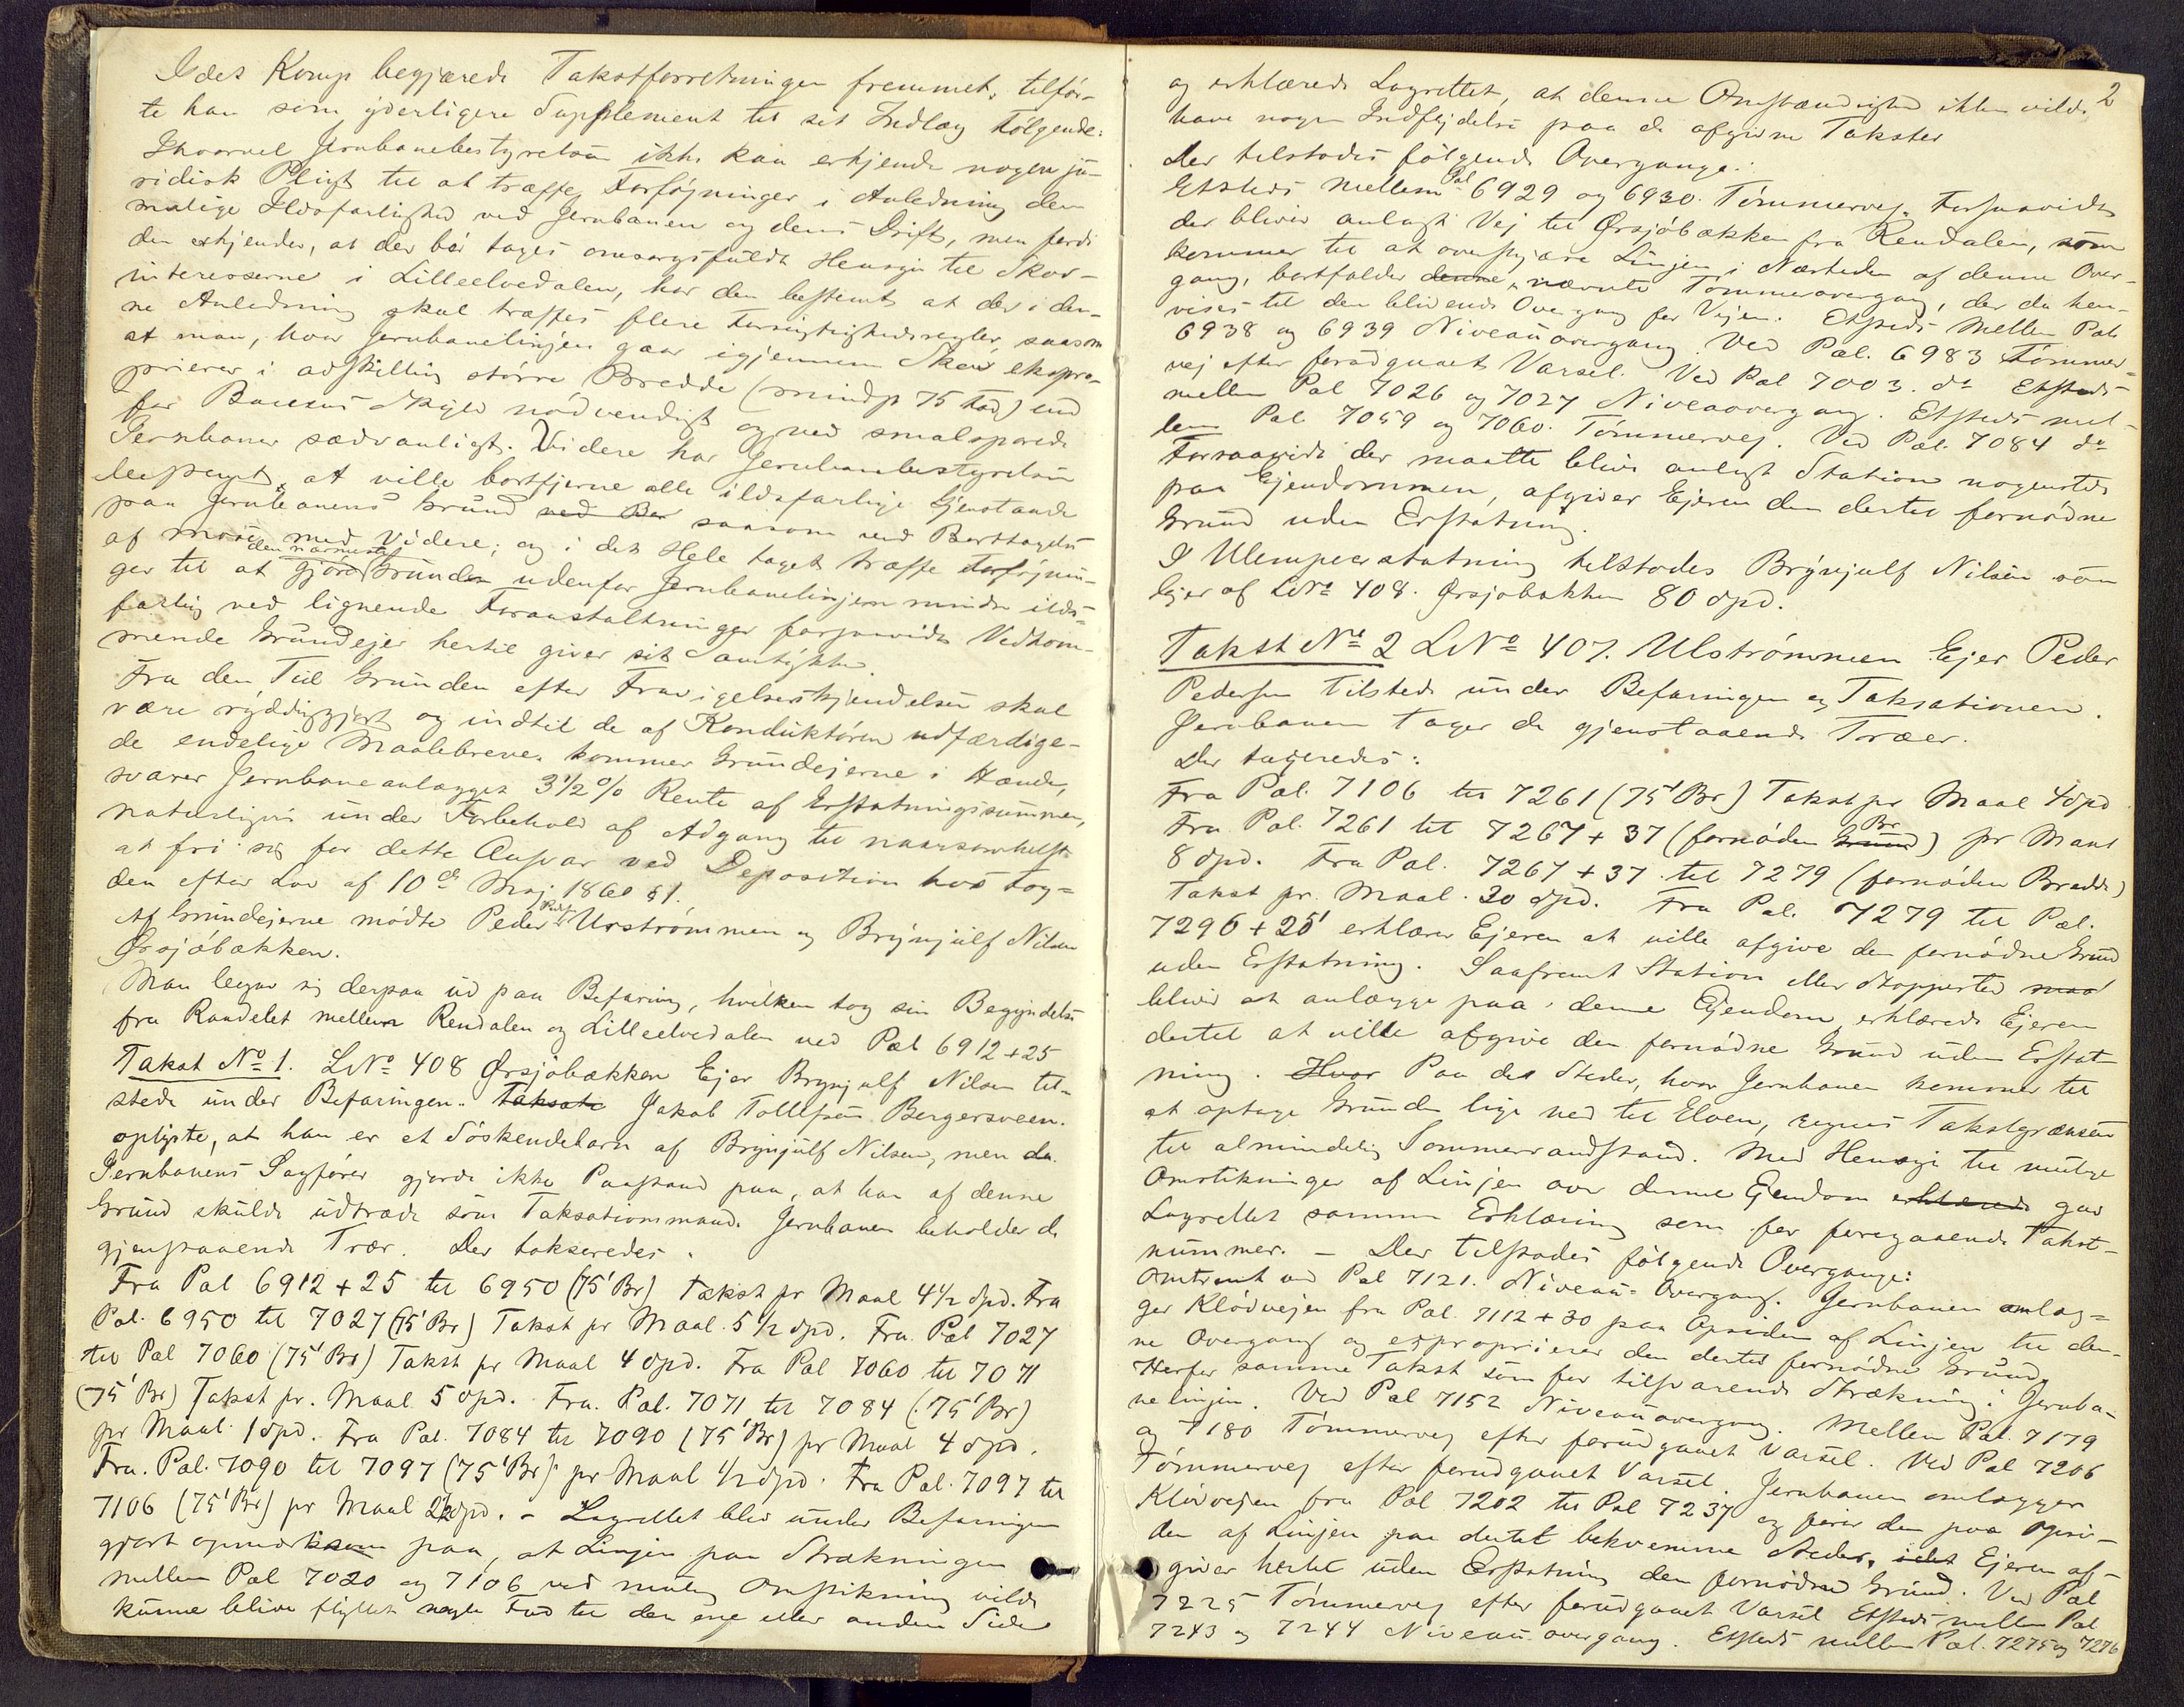 Idet Komp begjærede Takstforretningen fremmet, tilfør-
te han som yderligere Supplement til sit Indlæg Følgende:
Ihvorvel Jernbanebestyrelsen ikke kan erkjende nogen ju-
ridisk Pligt til at træffe Forføjninger i Anledning den
mulige Ildsfarlighed ved Jernbanen og dens Drift, men fordi
den erkjender, at der bør tages omsorgsfuldt Hensyn til Skov-
interesserne i Lilleelvedalen, har den bestemt at der i den-
ne Anledning skal træffes flere Forsigtighedsregler, saasom
at man, hvor Jernbanelinjen gaar igjennem Skov ekspro-
prierer i adskillig større Bredde (mindst 75 Fod) end
for Banens Skyld nødvendigt og ved smalsporede
Jernbaner sædvanligt. Videre har Jernbanebestyrelsen
bestemt, at ville bortfjerne alle ildsfarlige Gjenstande
paa Jernbanens Grund ved Bor saasom ved Borttagelse
af mose med Videre; og i det Hele taget træffe Forføjnin-
ger til at gjøre den nærmeste Grunden udenfor Jernbanelinjen mindre ilds-
farlig ved lignende Foranstaltninger forsaavidt Vedkom-
mende Grundejer hertil giver sit Samtykke.
Fra den Tid Grunden efter Fravigelseskjendelsen skal
være ryddiggjort og indtil de af Konduktøren udfærdige-
de endelige Maalebreve kommer Grundejerne i Hænde,
svarer Jernbaneanlægget 3½% Rente af Erstatningssummen,
naturligvis under Forbehold af Adgang til naarsomhelst
at fri sig for dette Ansvar ved Deposition hos Fog-
den efter Lov af 10de Maj 1860 § 1.
Af Grundejerne mødte Peder Peds Urstrømmen og Brynjulf Nilsen
Ørsjøbækken.
Man begav sig derpaa ud paa Befaring, hvilken tog sin Begyndelse
fra Raadelet mellem Rendalen og Lilleelvedalen ved Pæl 6912+25
Takst No 1. LNo 408 Ørsjøbækken Ejer Brynjulf Nilsen til-
stede under Befaringen. Taksate Jakob Tollefsen Bergersveen.
oplyste, at han er et Søskendebarn af Brynjulf Nilsen, men da
Jernbanens Sagfører gjorde ikke Paastand paa, at han af denne
Grund skulde udtræde som Taksationsmand. Jernbanen beholder de
gjenstaaende Trær. Der takseredes.
Fra Pæl 6912 + 25 til 6950 (75' Br) Takst pr Maal 4½ Spd. Fra
Pæl. 6950 til 7027 (75' Br) Takst pr Maal. 5½ Spd. Fra Pæl 7027
til Pæl 7060 (75' Br) Takst pr Maal 4 Spd. Fra Pæl 7060 til 7071
(75' Br) Takst pr. Maal 5 Spd. Fra. Pæl. 7071 til 7084 (75' Br)
pr Maal 1 Spd. Fra Pæl. 7084 til 7090 (75' Br) pr Maal 4 Spd.
Fra. Pæl. 7090 til 7097 (75' Br) pr Maal ½ Spd. Fra Pæl. 7097 til
7106 (75' Br) pr Maal 2½ Spd. - Lagrettet blev under Befaringen
gjort opmærksom paa, at Linjen paa Strækningen
mellem Pæl 7020 og 7106 ved mulig Omstikning vilde
kunne blive flyttet nogle Fod til den ene eller anden Side
2
og erklærede Lagrettet, at denne Omstændighed ikke vilde
have nogen Indflydelse paa de afgivne Takster
Der tilstodes følgende Overgange:
Etsteds mellem Pæl 6929 og 6930. Tømmervej. Forsaavidt
der bliver anlagt Vej til Ørsjøbækken fra Rendalen, som
kommer til at overskjære Linjen i Nærheden af denne Over-
gang, bortfalder denne, nævnte Tømmerovergang, der da hen-
vises til den blivende Overgang for Vejen. Etsteds mellem Pæle
6938 og 6939 Niveauovergang. Ved Pæl. 6983 Tømmer-
vej efter forudgaaet Varsel. Ved Pæl 7003. do Etsteds
mellem Pæl 7026 og 7027 Niveaovergang. Etsteds mel-
lem Pæl 7059 og 7060. Tømmervej. Ved Pæl. 7084 do
Forsaavidt der maatte blive anlagt Station nogensteds
paa Ejendommen, afgiver Ejeren den dertil fornødne
Grund uden Erstatning.
I Ulempeerstatning tilstodes Brynjulf Nilsen som
Ejer af LNo 408. Ørsjøbækken 80 Spd.
Takst No 2 LNo 407. Ulstrømmen Ejer Peder
Pedersen tilstede under Befaringen og Taksationen.
Jernbanen tager de gjenstaaende Træer.
Der taxeredes:
Fra Pæl. 7106 til 7261 (75' Br) Takst pr Maal 4 Spd
Fra Pæl. 7261 til 7267 + 37 (fornøden Grund Br) pr Maal
8 Spd. Fra Pæl. 7267 + 37 til 7279 (fornøden Bredde)
Takst pr. Maal. 30 Spd. Fra Pæl. 7279 til Pæl.
7296 + 25' erklærer Ejeren at ville afgive den fornødne Grund
uden Erstatning. Saafremt Station eller Stoppested maa
bliver at anlægge paa denne Ejendom, erklærede Ejeren
dertil at ville afgive den fornødne Grund uden Erstat-
ning. Hvor Paa de Steder, hvor Jernbanen kommer til
at optage Grunden lige ned til Elven, regnes Takstgrænsen
til almindelig Sommervandstand. Med Hensyn til mulige
Omstikninger af Linjen over denne Ejendom erklærede gav
Lagrettet samme Erklæring som for foregaaende Takst-
nummer. - Der tilstodes følgende Overgange:
Omtrent ved Pæl 7121. Niveau-Overgang. Jernbanen omlæg-
ger Kløvvejen fra Pæl. 7112 + 30 paa Opsiden af Linjen til den-
ne Overgang og exproprierer den dertil fornødne Grund,
Herfor samme Takst som for tilsvarende Strækning i Jernba-
nelinjen. Ved Pæl 7152 Niveauovergang. Mellem Pæl. 7179
og 7180 Tømmervej efter forudgaaet Varsel. Ved Pæl 7206
Tømmervej efter forudgaaet Varsel. Jernbanen omlægger
Kløvvejen fra Pæl 7202 til Pæl 7237 og fører den paa Opsi-
den af Linjen paa dertil bekvemme Steder, idet Ejeren af-
giver hertil uden Erstatning den fornødne Grund. Ved Pæl
7225 Tømmervej efter forudgaaet Varsel Etsteds mellem Pæl
7243 og 7244 Niveau-overgang. Etsteds mellem Pæl. 7275 og 7276